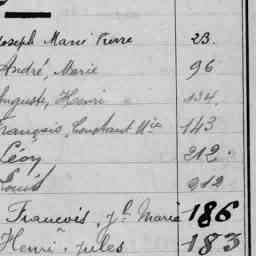 Joseph Marie Pierre 23.
André, Marie 96
Auguste, Henri 134.
François, Constant 143
Léon 212
Louis 212
François, Marie 186
Henri Jules 183